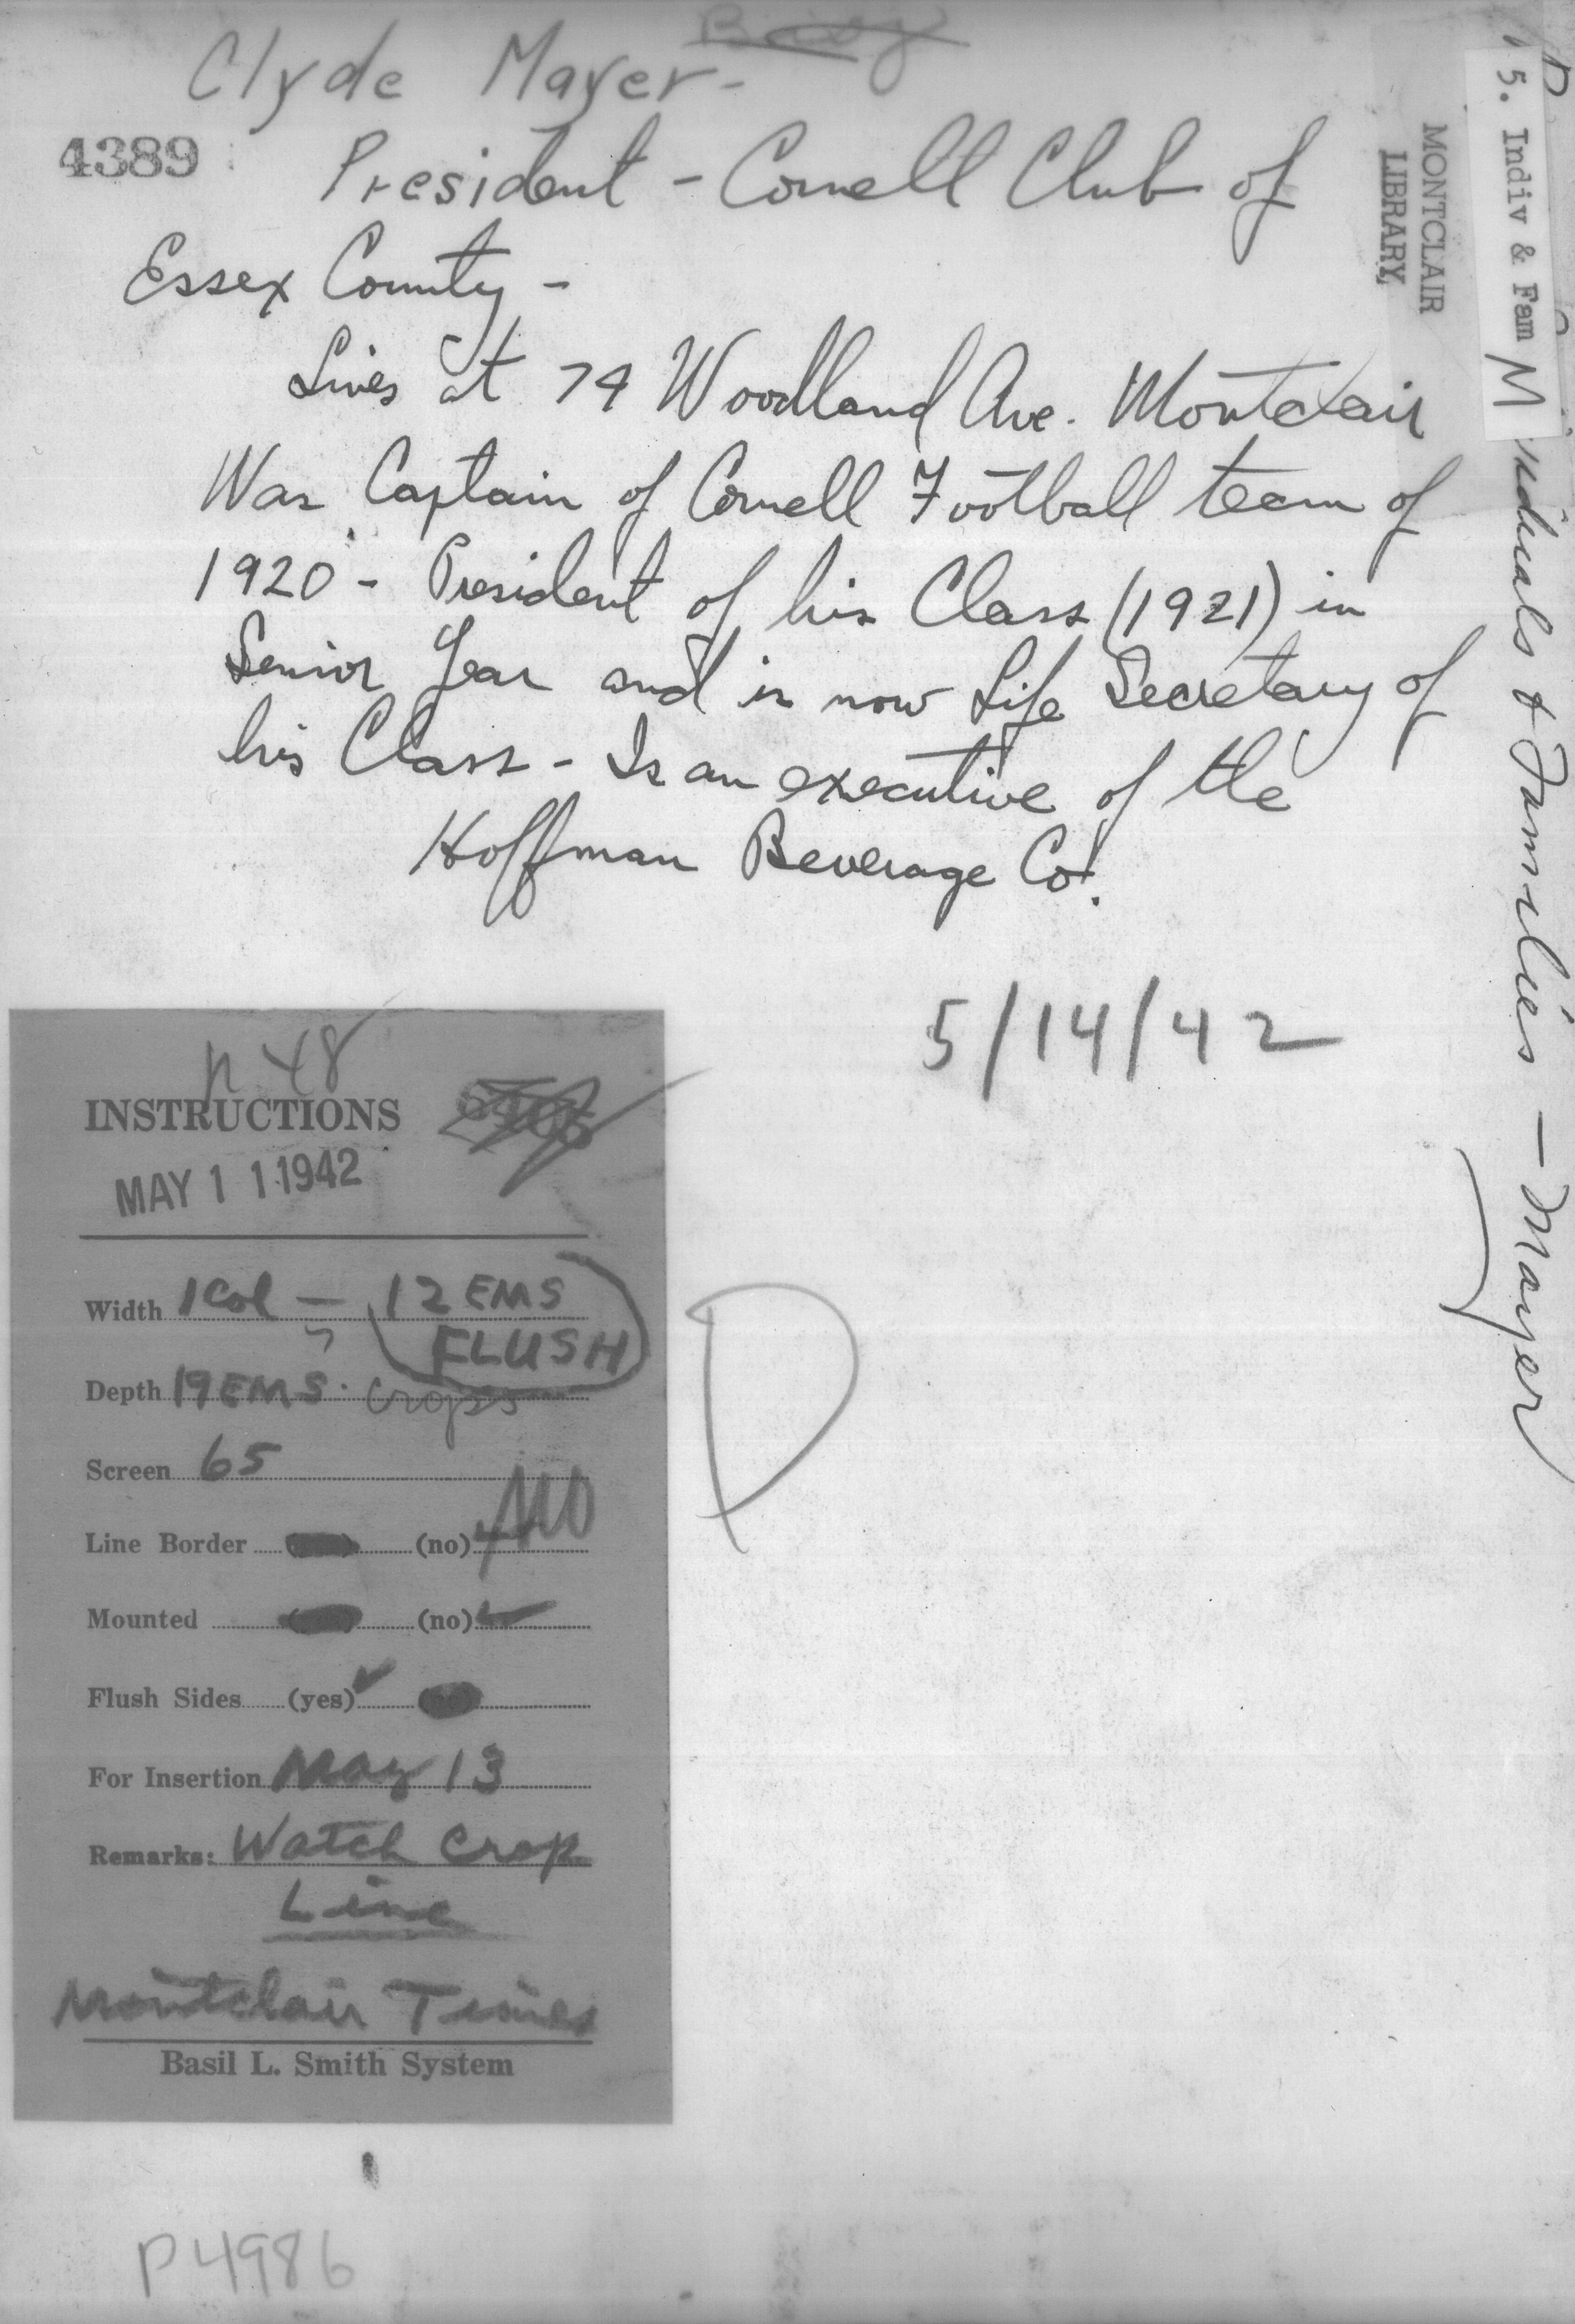 Clyde Mayer -
4389
President - Cornell Club of
Essex County -
Lives at 74 Woodland Ave. Montclair
Was Captain of Cornell Football team of
1920 - President of his Class (1921) in
Senior Year and is now Life Secretary of
his Class - Is an executive of the
Hoffman Beverage Co.
5/14/42
MONTCLAIR
LIBRARY
5. Indiv & Fam M
& Families - Mayer
INSTRUCTIONS
MAY 11 1942
Width 1 Col - 12 EMS
FLUSH
Depth 19 EMS. Crops
Screen 65
Line Border (no) NO
Mounted (no)
Flush Sides (yes)
For Insertion May 13
Remarks: Watch Crop
Line
Montclair Times
Basil L. Smith System
P4986